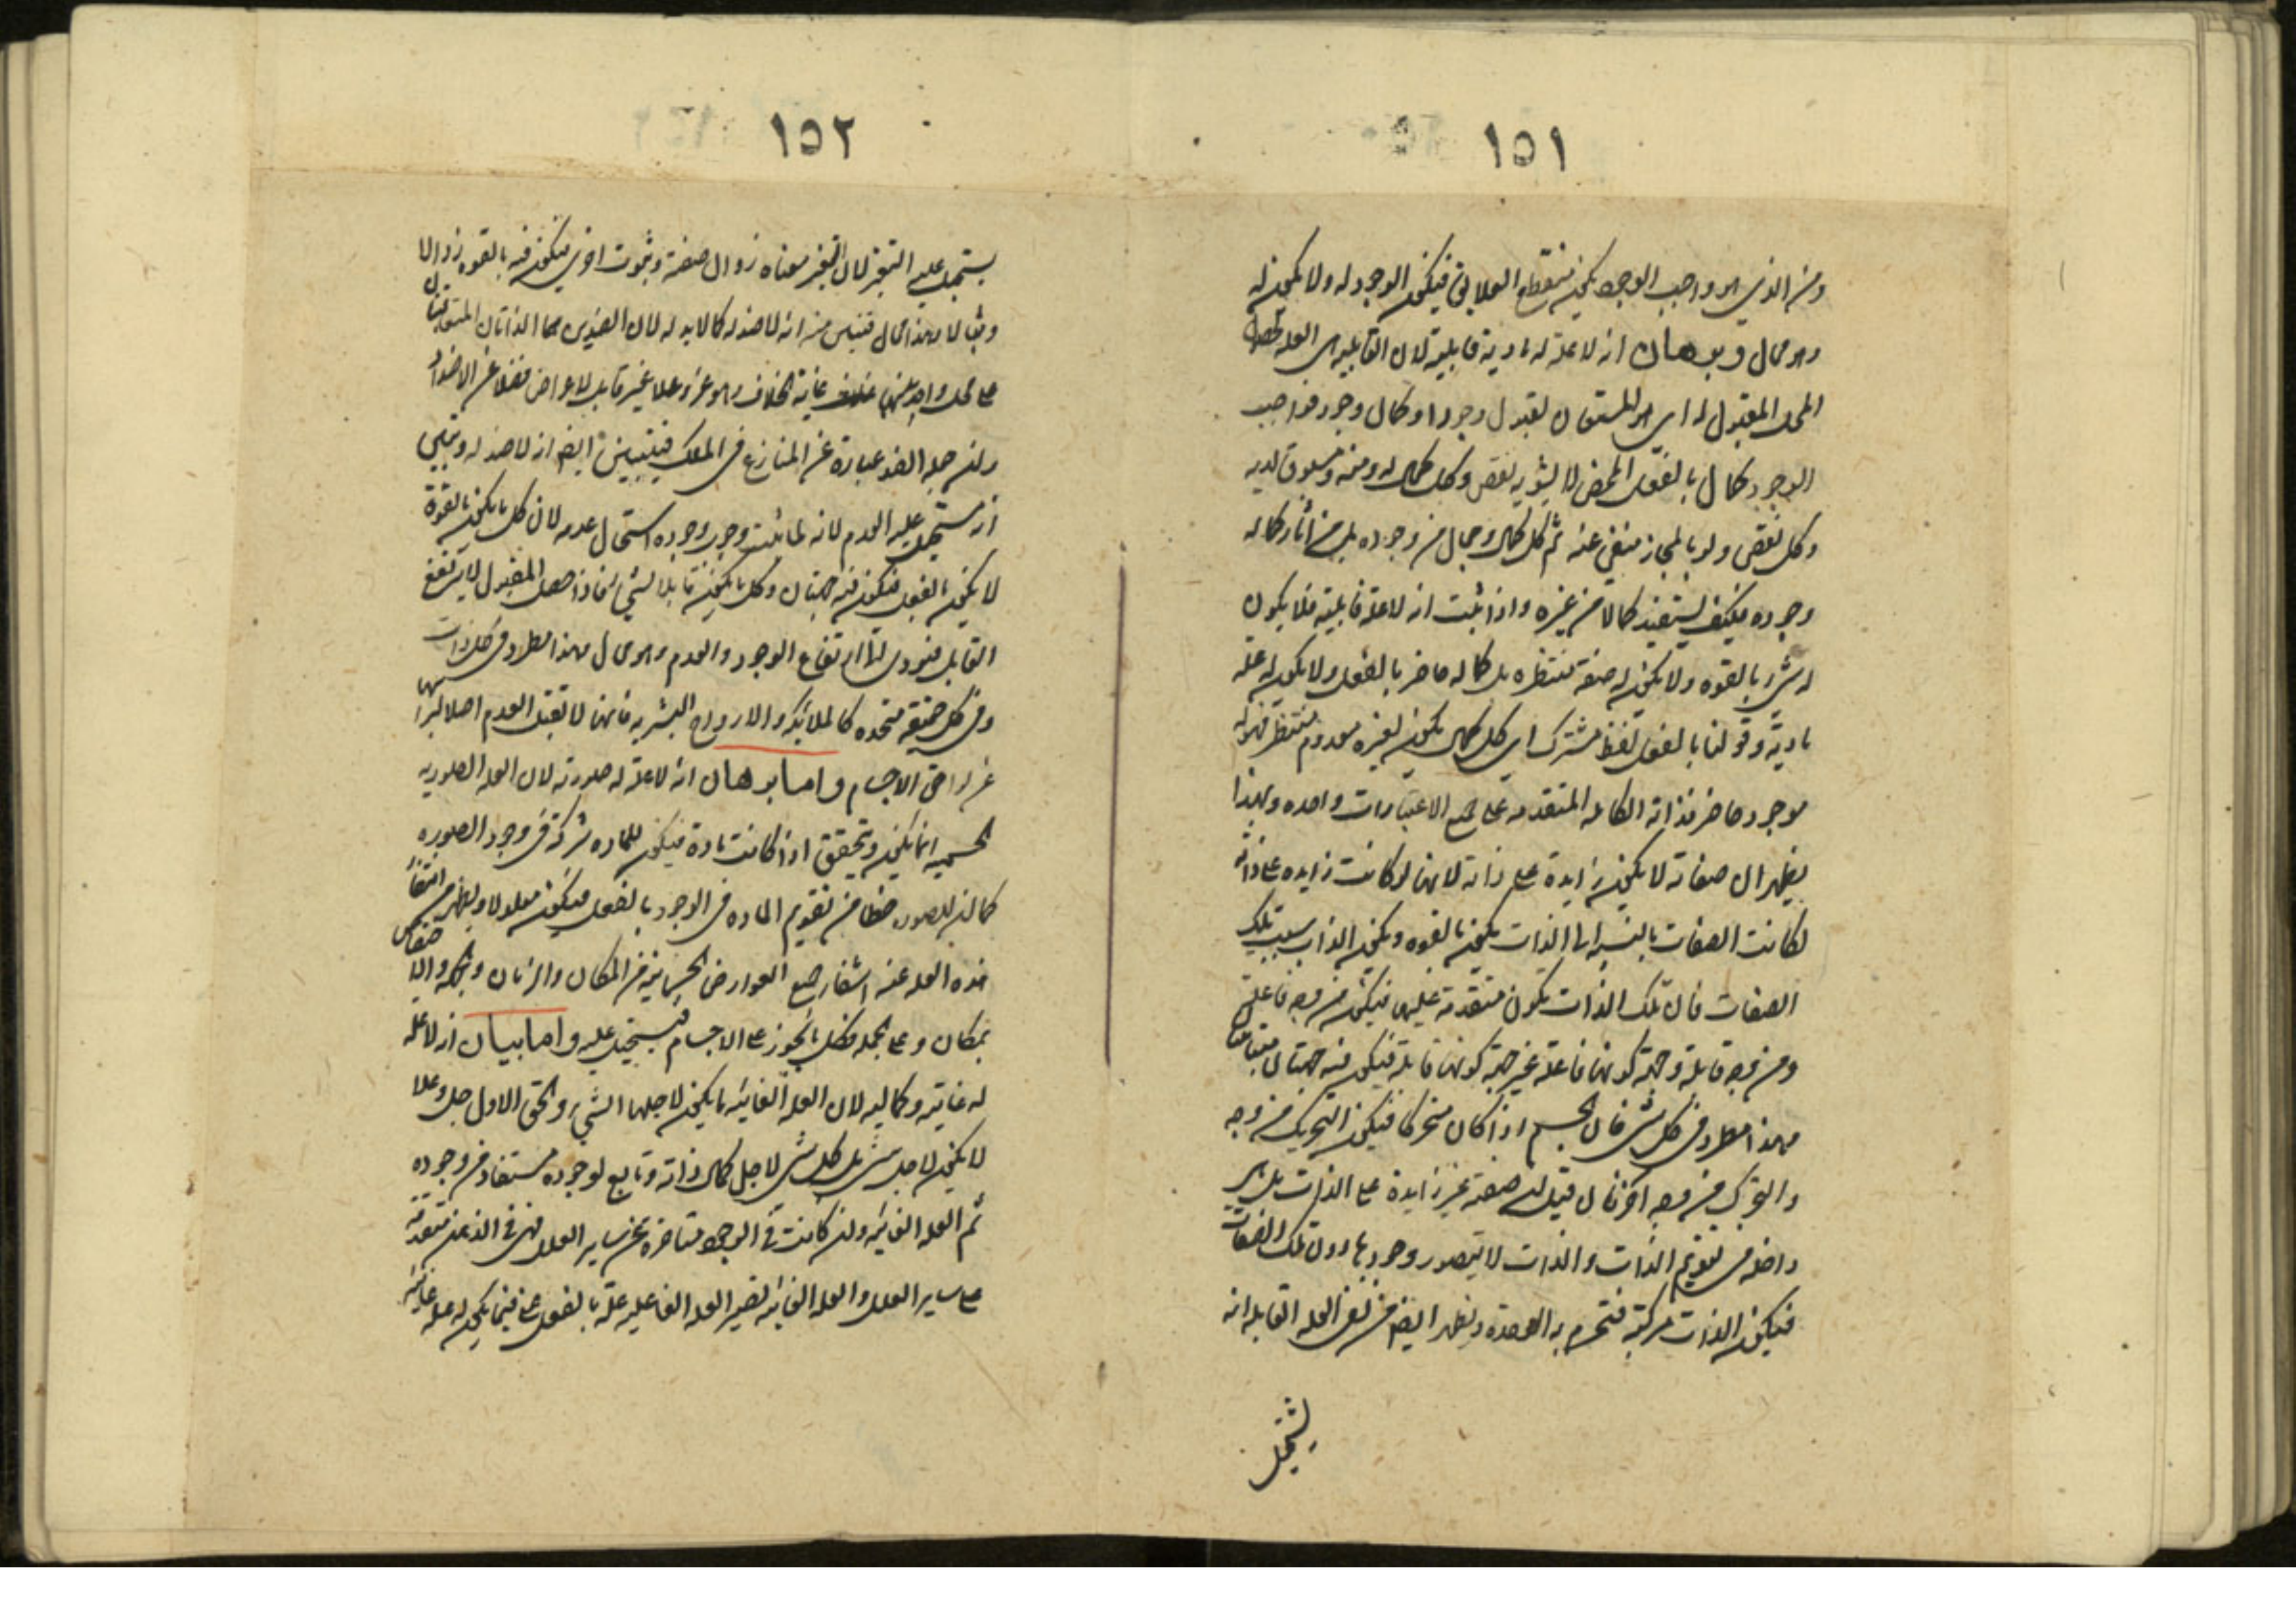 ١٥١
ومن الذي هو واجب الوجود يكون منقطع العلايق فيكون الوجود له ولا يكون له
وهو محال وبرهان انه لا علة له مادية قابلية لان القابلية هي العلة لحصول
المحل المقبول له اي هو المستعد لقبول وجود او كمال وجود فواجب
الوجود كمال بالفعل المحض لا يشوبه نقص وكل كمال له ومنه ومسبوق لديه
وكل نقص ولو بالمجاز منفي عنه ثم كل كمال وجمال من وجوده بل من آثار كماله
وجوده فكيف يستفيد كمالا من غيره واذا ثبت انه لا علة قابلية فلا يكون
له شيء بالقوه ولا يكون له صفة منتظره بل كماله حاضر بالفعل ولا يكون له علة
مادية وقولنا بالفعل لفظ مشترك اي كل كمال يكون لغيره معدوم منتظر فهو له
موجود حاضر فذاته الكاملة المتقدمة على جميع الاعتبارات واحده وبهذا
يظهر ان صفاته لا يكون زايدة على ذاته لانها لو كانت زايده على ذاته
لكانت الصفات بالنسبة الى الذات يكون بالقوه ويكون الذات سبب تلك
الصفات فان تلك الذات يكون متقدمة عليها فيكون من وجه فاعلة
ومن وجه قابلة وجهة كونها فاعلة غير جهة كونها قابلة فيكون فيه جهتان متباينتان
وهذا مطرد في كل شيء فان الجسم اذا كان متحركا فيكون التحريك من وجه
والتحرك من وجه اخر فان قيل ان صفته غير زايدة على الذات بل هي
داخله في تقويم الذات والذات لا يتصور وجودها دون تلك الصفات
فيكون الذات مركبة فتنخرم به الوحدة ويظهر ايضا من نفي العلة القابلة انه
يستحيل
١٥٢
يستحيل عليه التغير لان التغير معناه زوال صفة وثبوت اخرى فيكون فيه بالقوه زوالا
وثباتا وهذا محال فتبين منه انه لا ضد له كما لا ند له لان الضدين هما الذاتان المتعاقبتان
على محل واحد بينهما غاية الخلاف وهو عز وعلا غير قابل للاعراض فضلا عن الاضداد
وان جعل الضد عبارة عن المنازع في الملك فيتبين ايضا انه لا ضد له ويتبين
انه مستحيل عليه العدم لانه لما ثبت وجوب وجوده استحال عدمه لان كل ما يكون بالقوة
لا يكون بالفعل فيكون فيه جهتان وكل ما يكون قابلا لشيء فاذا حصل المقبول لا يرتفع
القابل فيؤدي الى ارتفاع الوجود والعدم وهو محال وهذا مطرد في كل ذات
وفي كل حقيقة متحده كالملائكة والارواح البشريه فانها لا تقبل العدم اصلا لبراءتها
عن لواحق الاجسام واما برهان انه لا علة له صورية لان العلة الصوريه
الجسميه انما يكون ويتحقق اذا كانت مادة فيكون للماده شركة في وجود الصوره
كما ان للصوره حظا من تقويم الماده في الوجود بالفعل فيكون معلولا ويظهر من انتفاء
هذه العله عنه انتفاء جميع العوارض الجسمانية من المكان والزمان والجهة والاختصاص
بمكان وعلى الجملة فكل ما يجوز على الاجسام يستحيل عليه واما بيان انه لا علة
له غائية وكماليه لان العله الغائيه ما يكون لاجلها الشيء والحق الاول جل وعلا
لا يكون لاجل شيء بل كل شيء لاجل كمال ذاته وتابع لوجوده مستفاد من وجوده
ثم العله الغائيه وان كانت في الوجود متاخره عن ساير العلل فهي في الذهن متقدمة
على ساير العلل والعله الغائيه تصير العله الفاعليه علة بالفعل فيما يكون له علة غائية